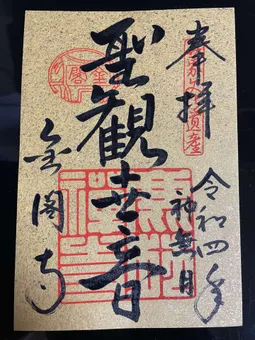 奉拝
令和四年
神無月
聖観世音
金閣寺
鹿苑
禅寺